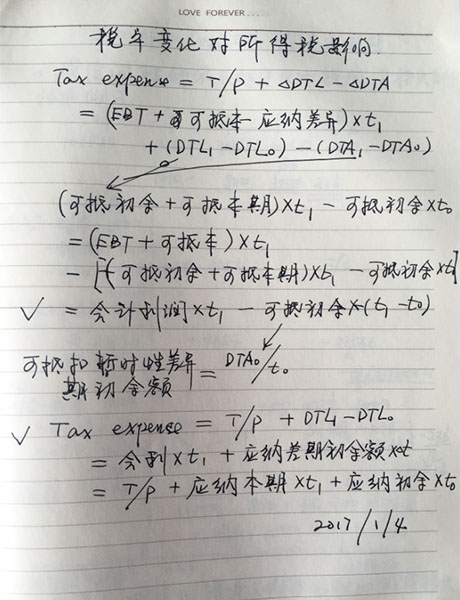 LOVE FOREVER...
税率变化对所得税影响.
Tax expense = T/P + ΔDTL - ΔDTA
= (EBT + 可抵本 - 应纳差异) × t₁
+ (DTL₁ - DTL₀) - (DTA₁ - DTA₀)
(可抵初余 + 可抵本期) × t₁ - 可抵初余 × t₀
= (EBT + 可抵本) × t₁
- [(可抵初余 + 可抵本期) × t₁ - 可抵初余 × t₀]
✓ = 会计利润 × t₁ - 可抵初余 × (t₁ - t₀)
可抵扣暂时性差异
期初余额 = DTA₀/t₀
✓ Tax expense = T/P + DTL₁ - DTL₀
= 会利 × t₁ + 应纳差期初余额 × t
= T/P + 应纳本期 × t₁ + 应纳初余 × t₀
2017/1/4